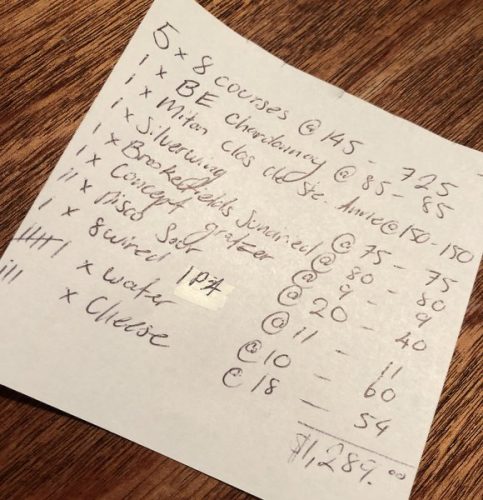 5 x 8 courses @ 145 - 725
1 x BE Chardonnay @ 85 - 85
1 x Mitan Clos de Ste. Anne @ 150 - 150
1 x Silverwing @ 75 - 75
1 x Brookefields Sundried @ 80 - 80
1 x Concept gratzer @ 9 - 9
11 x Pisco Sour @ 20 - 40
1 x 8 wired IPA @ 11 - 11
𝍸1 x water @ 10 - 60
111 x Cheese @ 18 - 54
$1,289.00